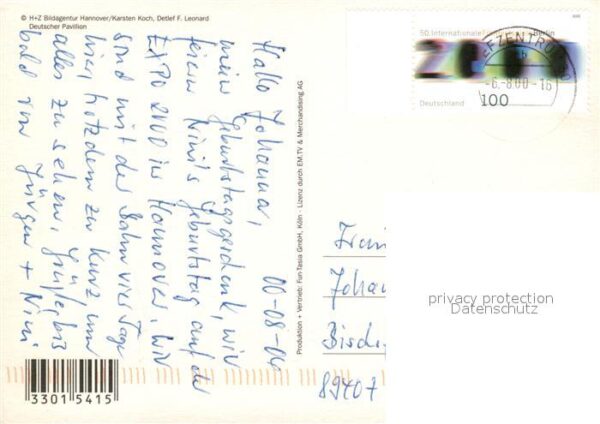 © H+Z Bildagentur Hannover/Karsten Koch, Detlef F. Leonard
Deutscher Pavillion
00-08-06
Hallo Johanna,
mein Geburtstagsgeschenk, wir
feiern Nini's Geburtstag auf der
EXPO 2000 in Hannover. Wir
sind mit der Bahn vier Tage
hier, trotzdem zu kurz um
alles zu sehen. Grüße, bis
bald von Jürgen + Nini
3301 5415
Produktion + Vertrieb: Fun-Tasia GmbH, Köln · Lizenz durch EM.TV & Merchandising AG
50. Internationale Berlin
2000
Deutschland
100
BRIEFZENTRUM 30
-6.-8.00-16
Johan
Bisch
89407
privacy protection
Datenschutz